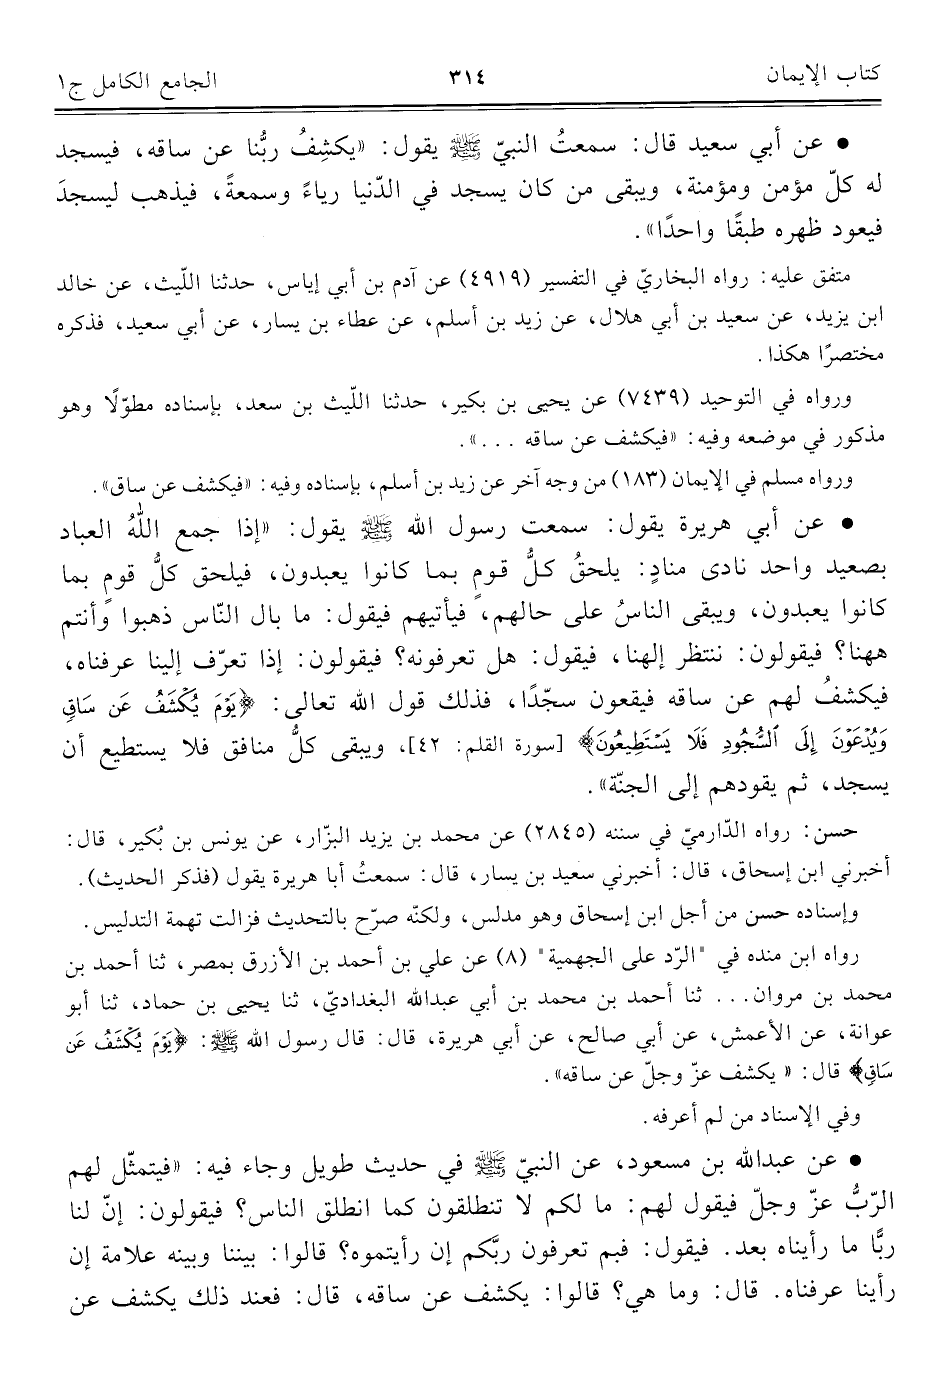 كتاب الإيمان ٣١٤ الجامع الكامل ج١
• عن أبي سعيد قال: سمعتُ النبيّ ﷺ يقول: «يكشِفُ ربُّنا عن ساقه، فيسجد
له كلّ مؤمن ومؤمنة، ويبقى من كان يسجد في الدّنيا رياءً وسمعةً، فيذهب ليسجدَ
فيعود ظهره طبقًا واحدًا».
متفق عليه: رواه البخاريّ في التفسير (٤٩١٩) عن آدم بن أبي إياس، حدثنا اللّيث، عن خالد
ابن يزيد، عن سعيد بن أبي هلال، عن زيد بن أسلم، عن عطاء بن يسار، عن أبي سعيد، فذكره
مختصرًا هكذا.
ورواه في التوحيد (٧٤٣٩) عن يحيى بن بكير، حدثنا اللّيث بن سعد، بإسناده مطوّلًا وهو
مذكور في موضعه وفيه: «فيكشف عن ساقه ...».
ورواه مسلم في الإيمان (١٨٣) من وجه آخر عن زيد بن أسلم، بإسناده وفيه: «فيكشف عن ساق».
• عن أبي هريرة يقول: سمعت رسول الله ﷺ يقول: «إذا جمع اللهُ العباد
بصعيد واحد نادى منادٍ: يلحقُ كلُّ قومٍ بما كانوا يعبدون، فيلحق كلُّ قومٍ بما
كانوا يعبدون، ويبقى الناسُ على حالهم، فيأتيهم فيقول: ما بال النّاس ذهبوا وأنتم
ههنا؟ فيقولون: ننتظر إلهنا، فيقول: هل تعرفونه؟ فيقولون: إذا تعرّف إلينا عرفناه،
فيكشفُ لهم عن ساقه فيقعون سجّدًا، فذلك قول الله تعالى: ﴿يَوْمَ يُكْشَفُ عَن سَاقٍ
وَيُدْعَوْنَ إِلَى السُّجُودِ فَلَا يَسْتَطِيعُونَ﴾ [سورة القلم: ٤٢]، ويبقى كلُّ منافق فلا يستطيع أن
يسجد، ثم يقودهم إلى الجنّة».
حسن: رواه الدّارميّ في سننه (٢٨٤٥) عن محمد بن يزيد البزّار، عن يونس بن بُكير، قال:
أخبرني ابن إسحاق، قال: أخبرني سعيد بن يسار، قال: سمعتُ أبا هريرة يقول (فذكر الحديث).
وإسناده حسن من أجل ابن إسحاق وهو مدلس، ولكنّه صرّح بالتحديث فزالت تهمة التدليس.
رواه ابن منده في "الرّد على الجهمية" (٨) عن علي بن أحمد بن الأزرق بمصر، ثنا أحمد بن
محمد بن مروان... ثنا أحمد بن محمد بن أبي عبدالله البغداديّ، ثنا يحيى بن حماد، ثنا أبو
عوانة، عن الأعمش، عن أبي صالح، عن أبي هريرة، قال: قال رسول الله ﷺ: ﴿يَوْمَ يُكْشَفُ عَن
سَاقٍ﴾ قال: « يكشف عزّ وجلّ عن ساقه».
وفي الإسناد من لم أعرفه.
• عن عبدالله بن مسعود، عن النبيّ ﷺ في حديث طويل وجاء فيه: «فيتمثّل لهم
الرّبُّ عزّ وجلّ فيقول لهم: ما لكم لا تنطلقون كما انطلق الناس؟ فيقولون: إنّ لنا
ربًّا ما رأيناه بعد. فيقول: فبم تعرفون ربَّكم إن رأيتموه؟ قالوا: بيننا وبينه علامة إن
رأينا عرفناه. قال: وما هي؟ قالوا: يكشف عن ساقه، قال: فعند ذلك يكشف عن